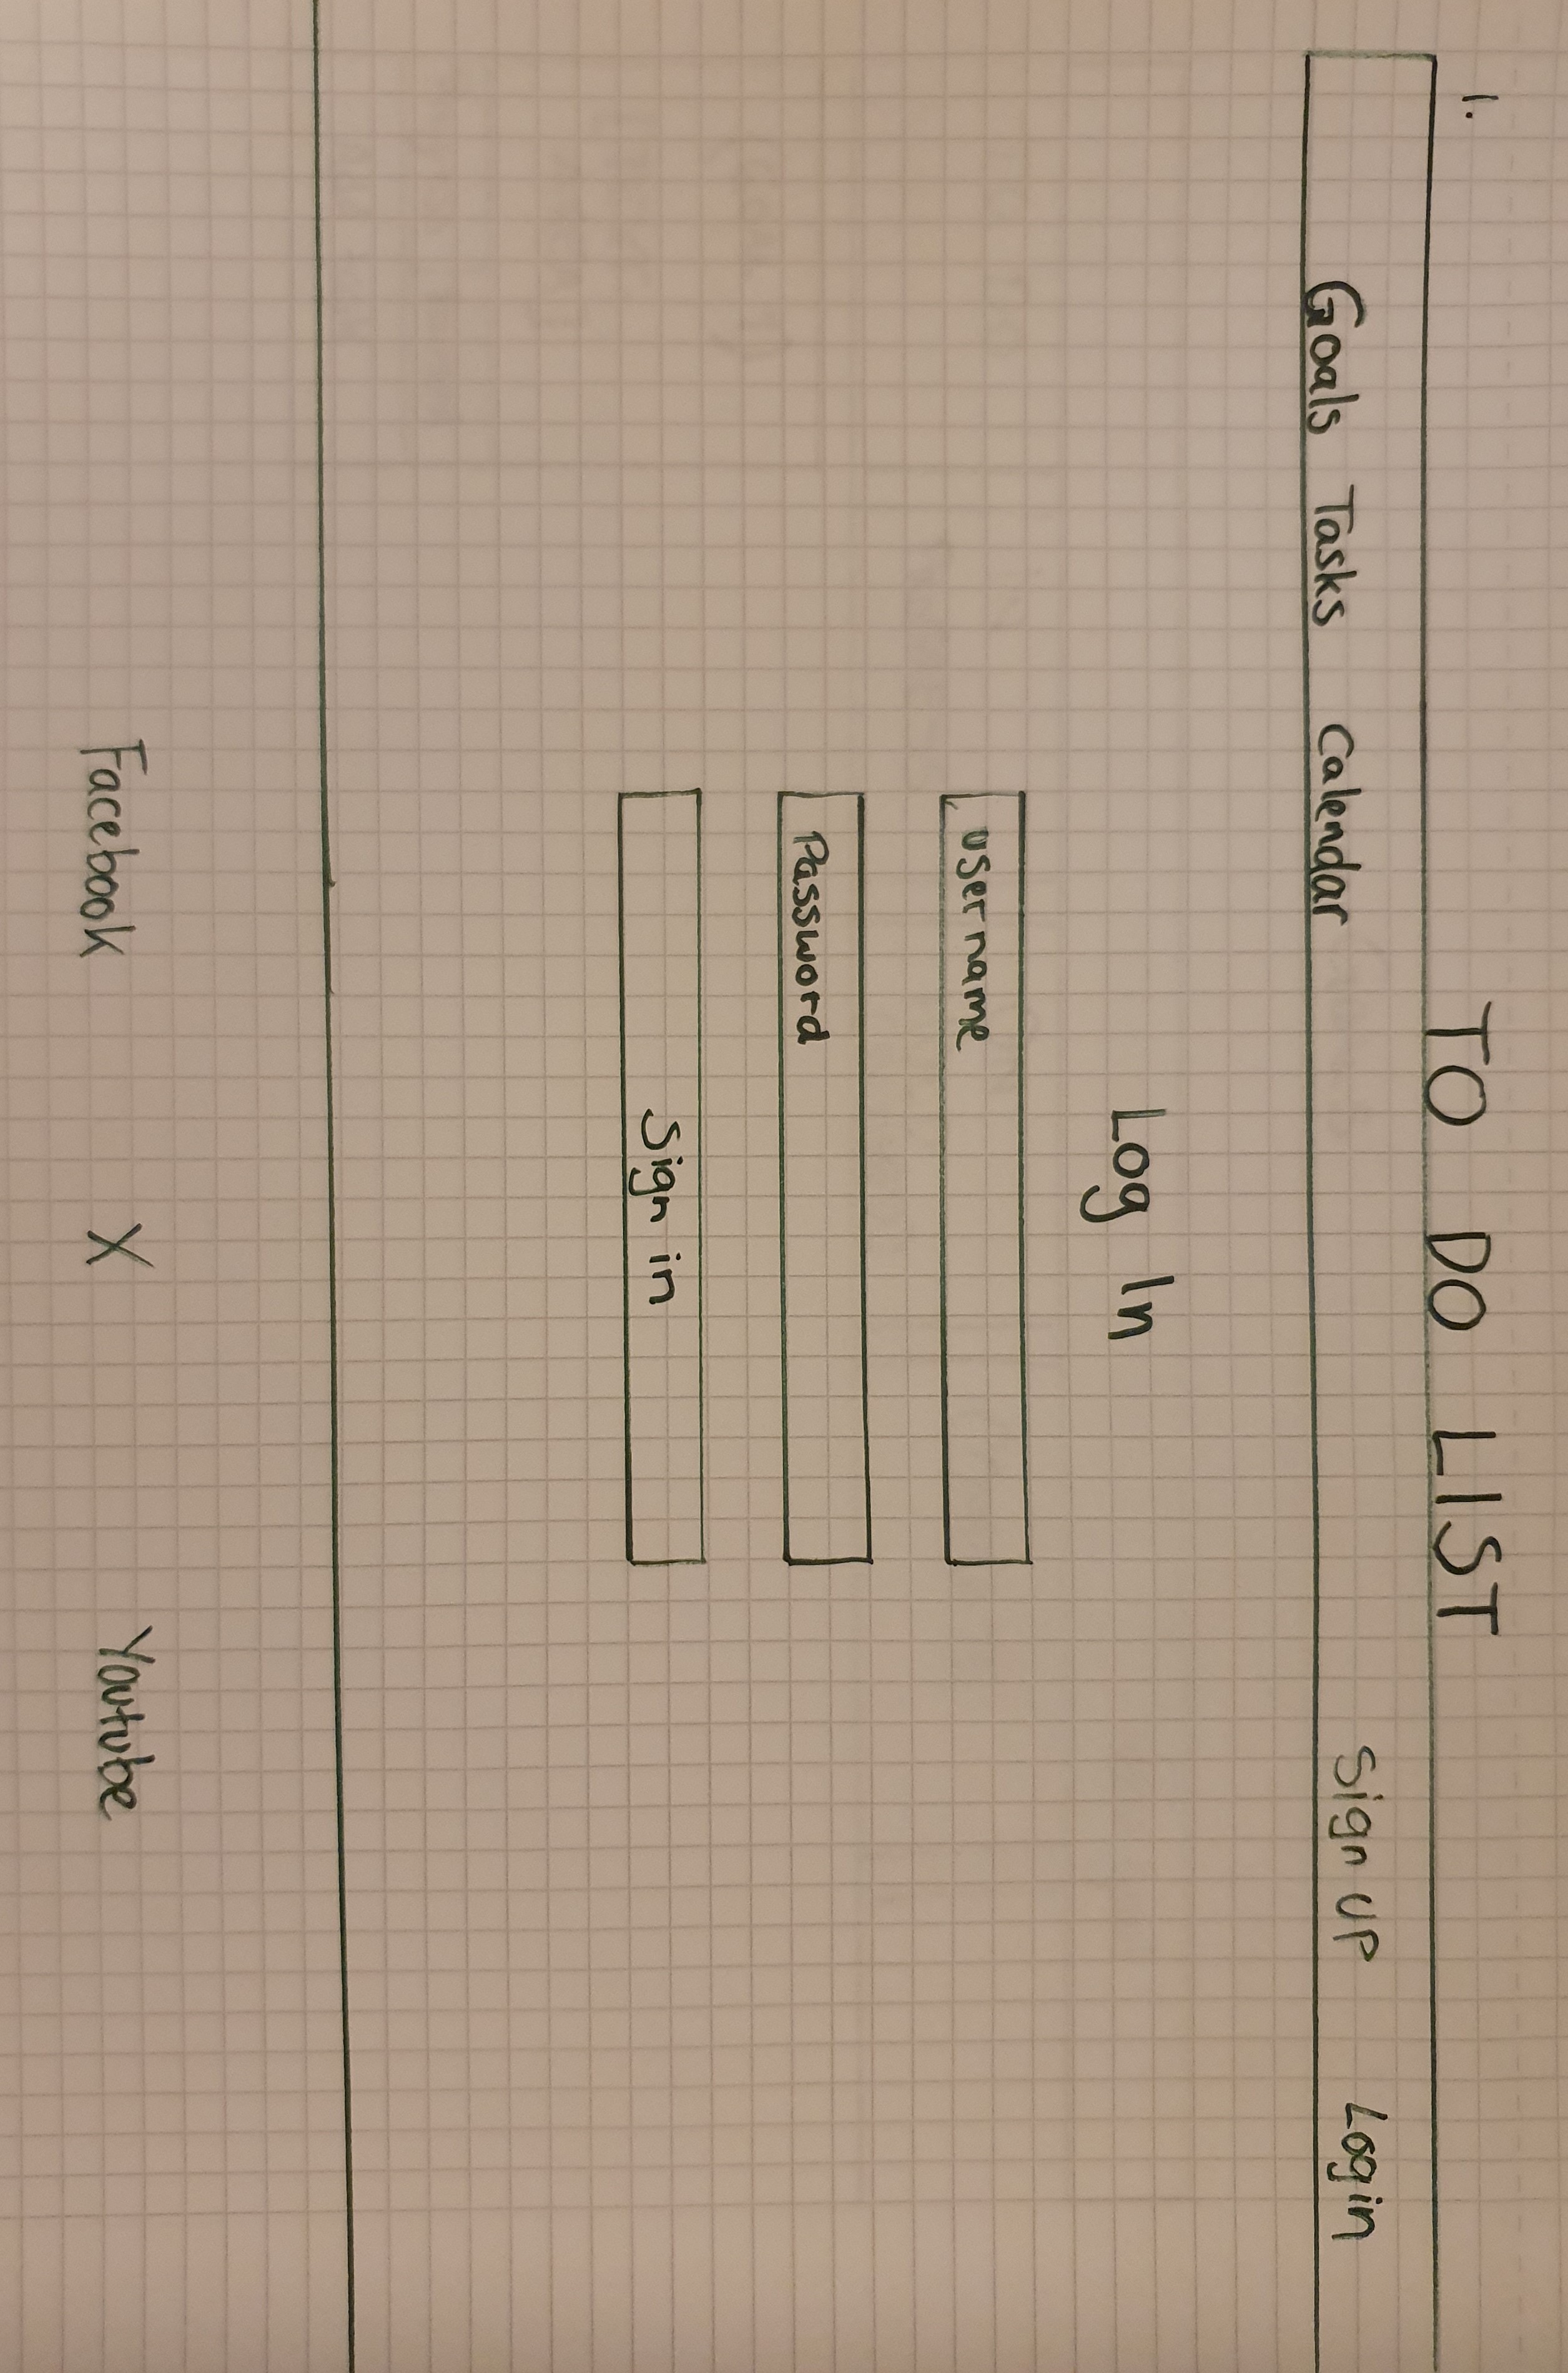 1.
TO DO LIST
Goals Tasks Calendar Sign UP Login
Log In
username
Password
Sign in
Facebook X Youtube